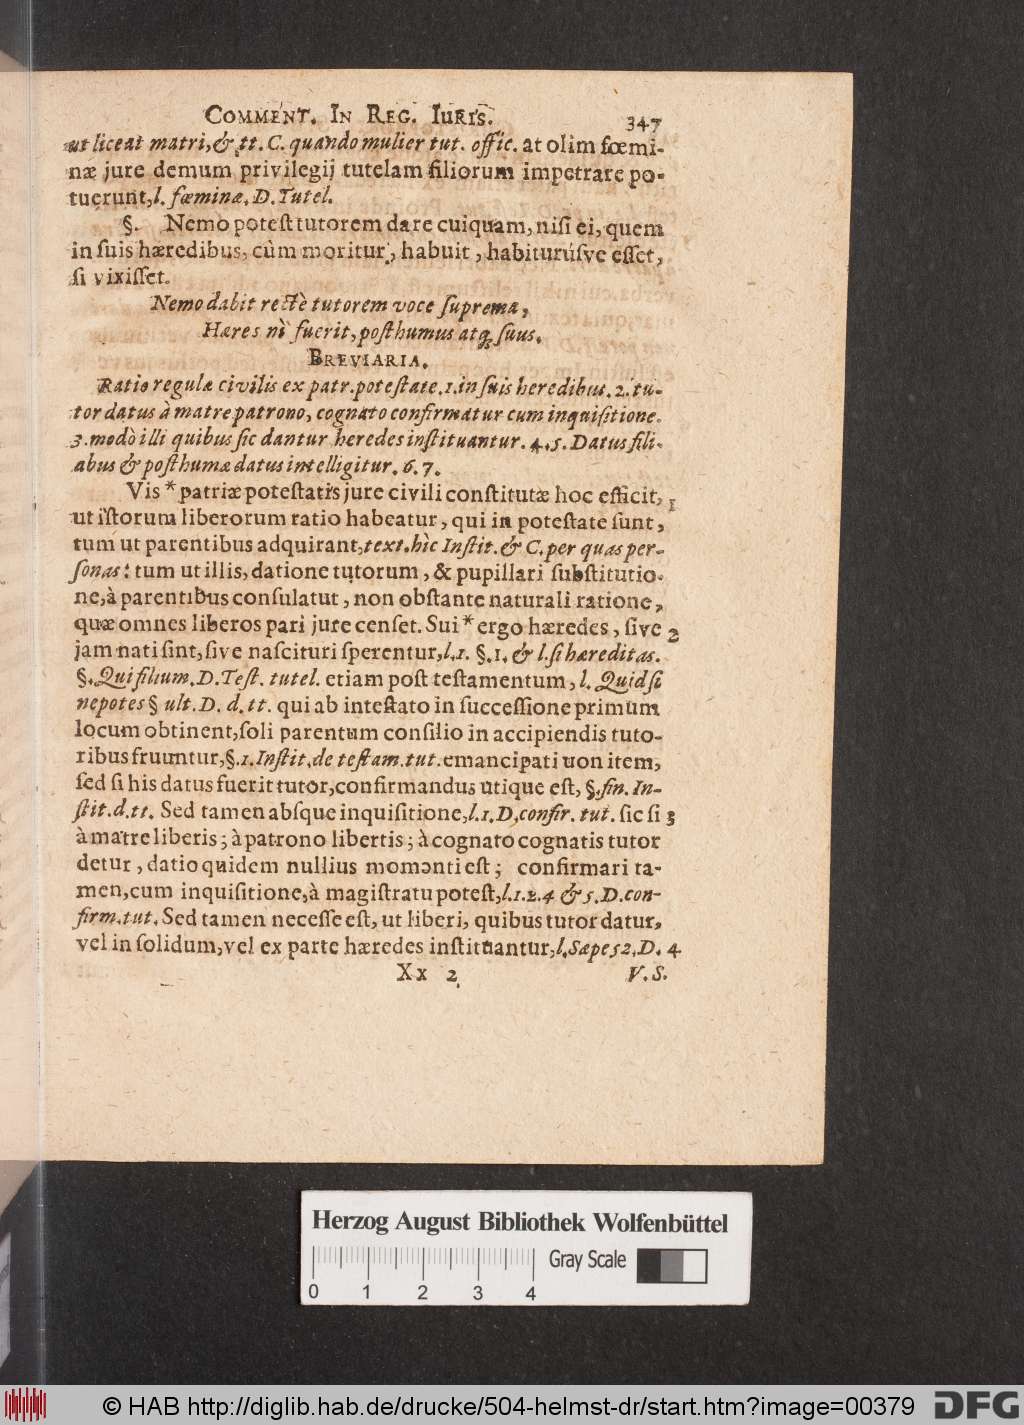 COMMENT. IN REG. IURIS. 347
ut liceat matri, & tt. C. quando mulier tut. offic. at olim fœmi-
næ jure demum privilegij tutelam filiorum impetrare po-
tuerunt, l. fœminæ. D. Tutel.
§. Nemo potest tutorem dare cuiquam, nisi ei, quem
in suis hæredibus, cùm moritur, habuit, habiturúsve esset,
si vixisset.
Nemo dabit rectè tutorem voce suprema,
Hæres nì fuerit, posthumus atq; suus.
BREVIARIA.
Ratio regulæ civilis ex patr. potestate. 1. in suis heredibus. 2. tu-
tor datus à matre patrono, cognato confirmatur cum inquisitione.
3. modò illi quibus sic dantur heredes instituantur. 4. 5. Datus fili-
abus & posthumæ datus intelligitur. 6. 7.
Vis * patriæ potestatis jure civili constitutæ hoc efficit, 1
ut istorum liberorum ratio habeatur, qui in potestate sunt,
tum ut parentibus adquirant, text. hìc Instit. & C. per quas per-
sonas: tum ut illis, datione tutorum, & pupillari substitutio-
ne, à parentibus consulatut, non obstante naturali ratione,
quæ omnes liberos pari jure censet. Sui * ergo hæredes, sive 2
jam nati sint, sive nascituri sperentur, l. 1. §. 1. & l. si hæreditas.
§. Qui filium. D. Test. tutel. etiam post testamentum, l. Quid si
nepotes § ult. D. d. tt. qui ab intestato in successione primum
locum obtinent, soli parentum consilio in accipiendis tuto-
ribus fruuntur, §. 1. Instit. de testam. tut. emancipati uon item,
sed si his datus fuerit tutor, confirmandus utique est, §. fin. In-
stit. d. tt. Sed tamen absque inquisitione, l. 1. D, confir. tut. sic si 3
à matre liberis; à patrono libertis; à cognato cognatis tutor
detur, datio quidem nullius momenti est; confirmari ta-
men, cum inquisitione, à magistratu potest, l. 1. 2. 4 & 5. D. con-
firm. tut. Sed tamen necesse est, ut liberi, quibus tutor datur,
vel in solidum, vel ex parte hæredes instituantur, l. Sæpe 52. D. 4
Xx 2 V. S.
Herzog August Bibliothek Wolfenbüttel
Gray Scale
0 1 2 3 4
© HAB http://diglib.hab.de/drucke/504-helmst-dr/start.htm?image=00379 DFG